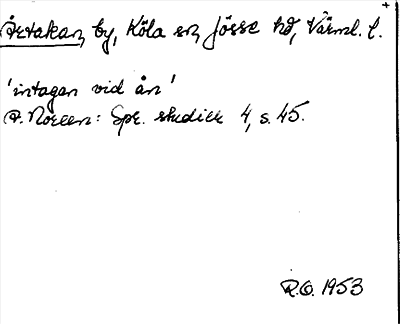 Årtakan, by, Köla sn, Jösse hd, Värml. l.
'intagan vid ån'
A. Noreen: Spr. studier 4, s. 45.
R.O. 1953